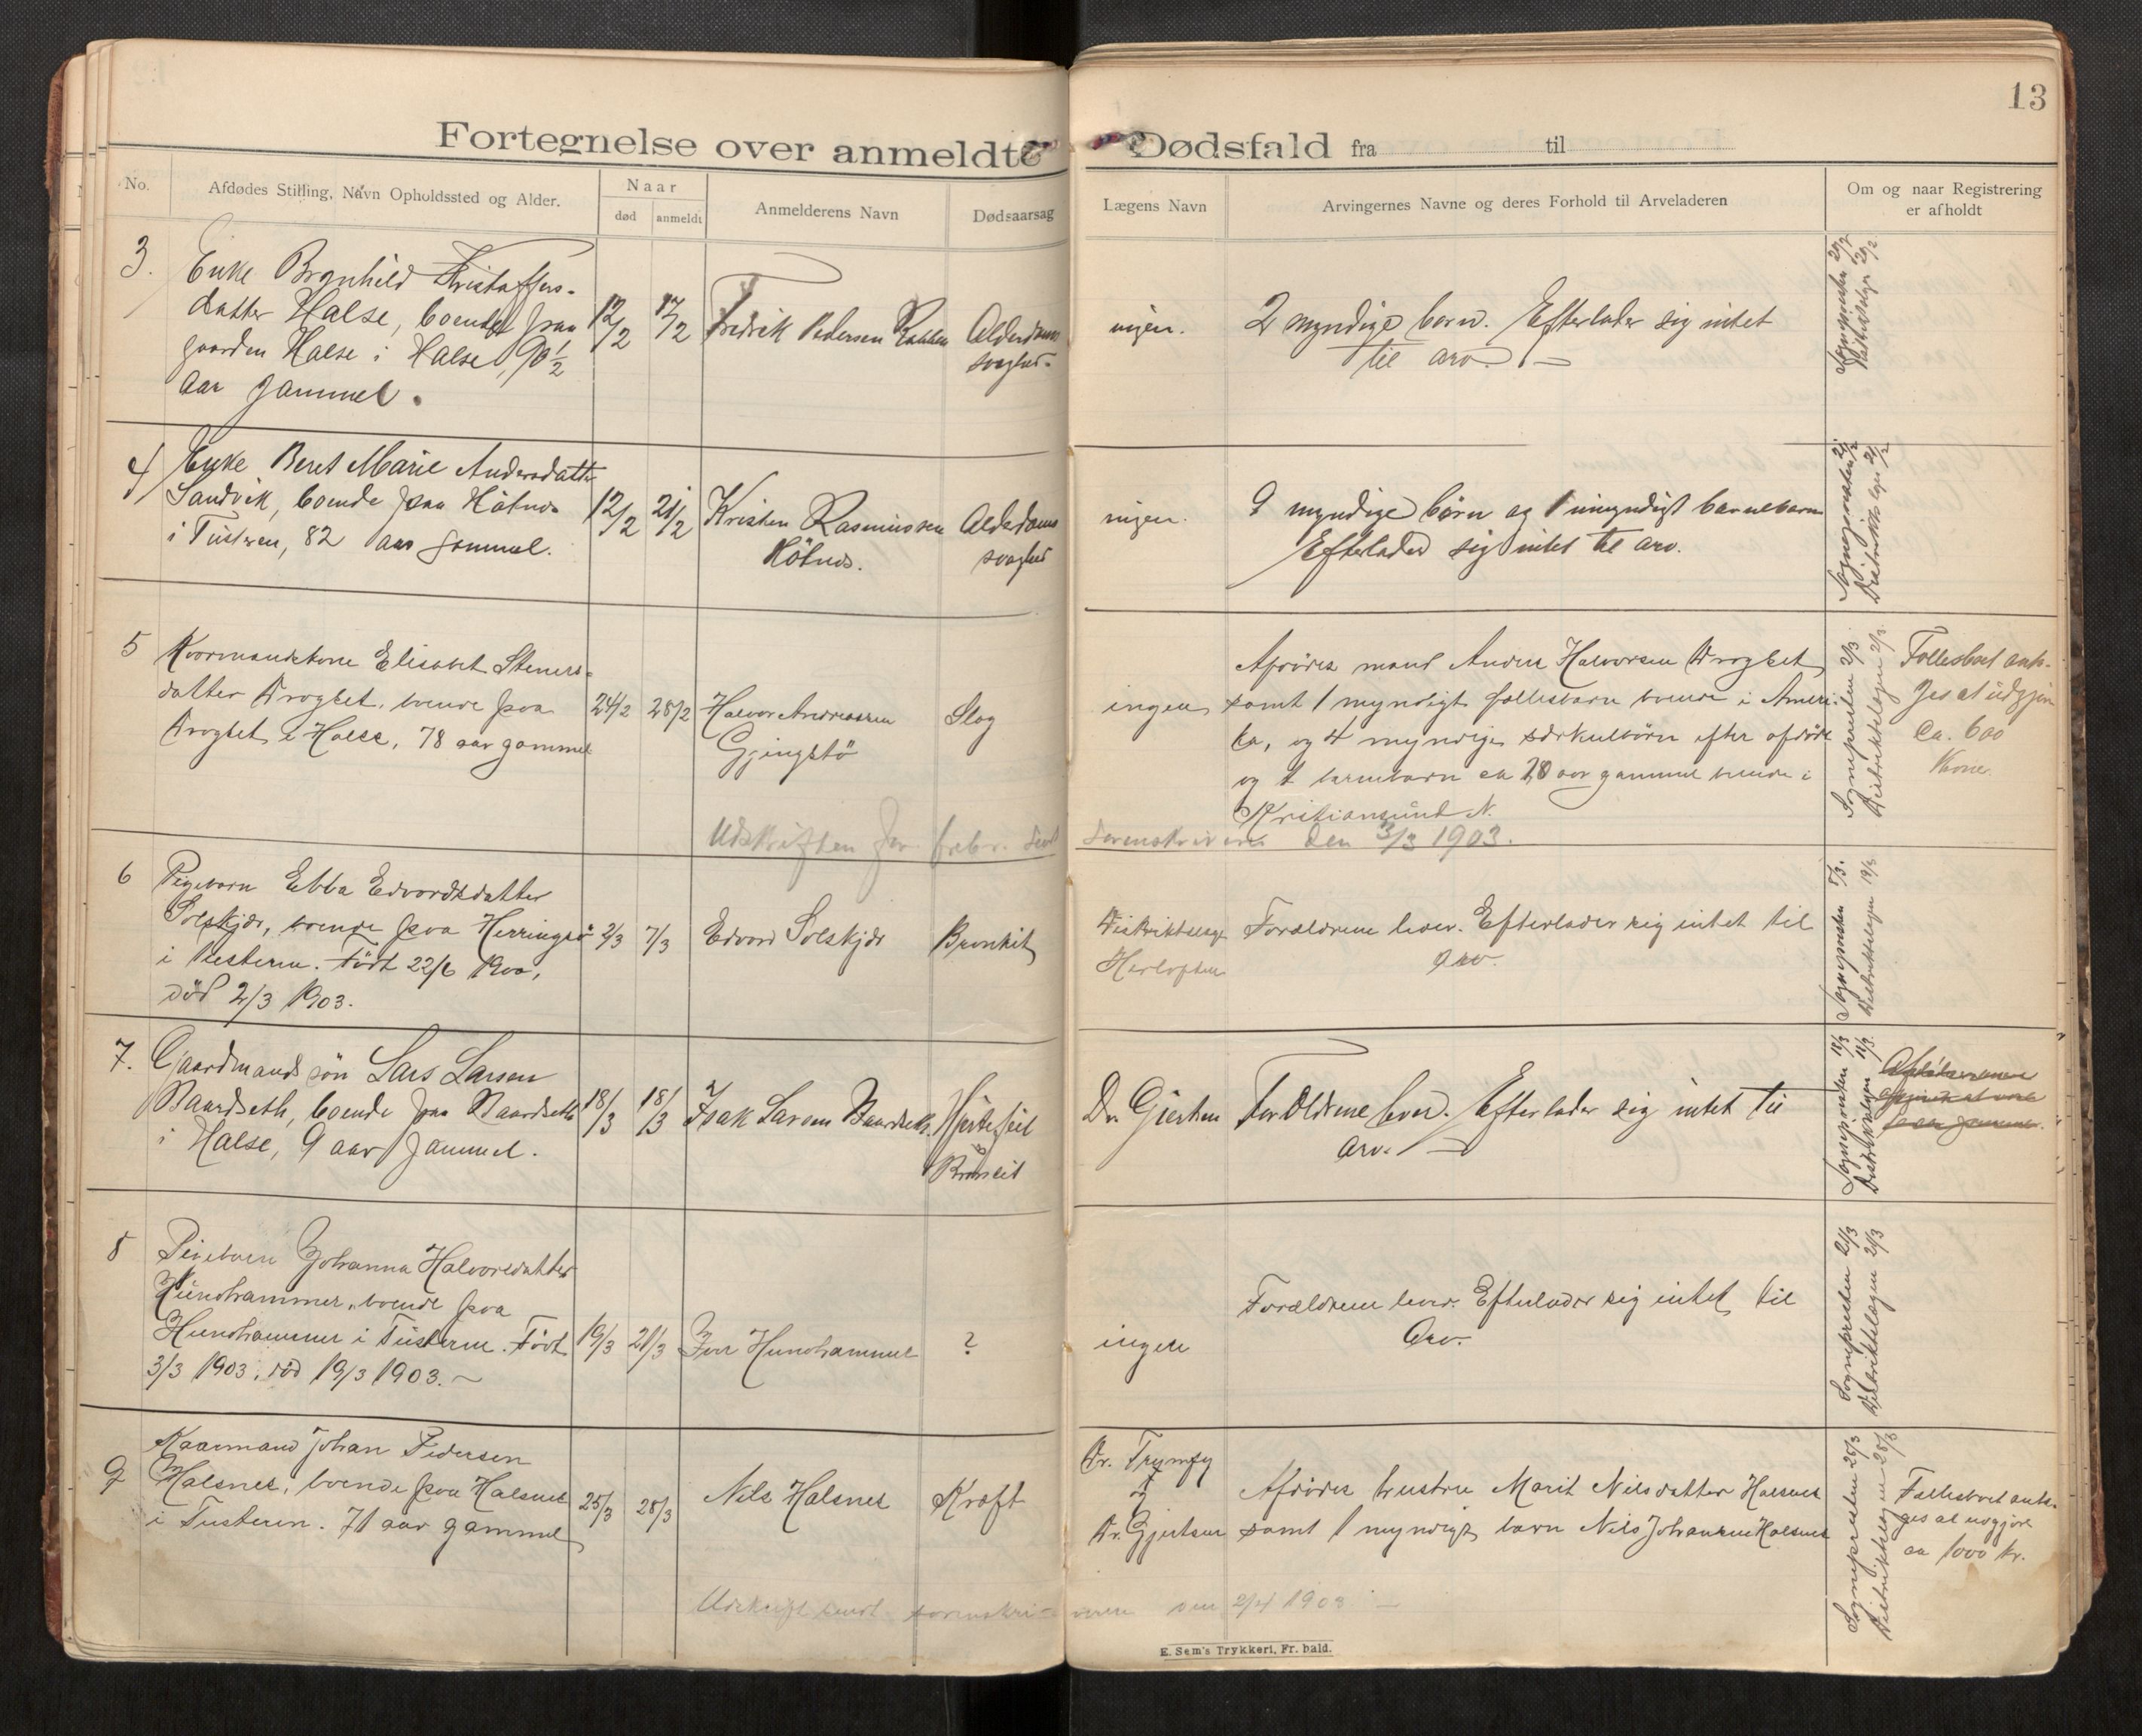 13
Fortegnelse over anmeldte Dødsfald fra til
No.
Afdødes Stilling, Navn Opholdssted og Alder.
Naar
død
anmeldt
Anmelderens Navn
Dødsaarsag
Lægens Navn
Arvingernes Navne og deres Forhold til Arveladeren
Om og naar Registrering
er afholdt
3.
Enke Branhild Kristoffers-
datter Halse, boende paa
gaarden Halse i Halse, 90½
aar gammel.
12/2
17/2
Fredrik Pedersen
Alderdoms
svaghed.
ingen.
2 myndige børn. Efterlader sig intet
til arv.
4
Enke Beret Marie Andersdatter
Sandvik, boende paa
i Tusteren, 82 aar gammel.
12/2
21/2
Kristen Rasmussen
Alderdoms
svaghed
ingen.
9 myndige børn og 1 umyndigt barnebarn
Efterlader sig intet til arv.
Sognepresten 21/2
Distriktslægen 21/2
5
Kaarmandskone Elisabet Steners-
datter Drogset, boende paa
Drogset i Halse, 78 aar gammel
24/2
28/2
Halvor Andreassen
Gjengstö
Slag
ingen
Afdödes mand Anders Halvorsen Drogset
samt 1 myndigt fællesbarn boende i Ameri-
ka, og 4 myndige særkulbörn efter afdöde
og 1 barnebarn ca 20 aar gammel boende i
Kristiansund N.
Sognepresten 2/3.
Distriktslægen 2/3.
Fællesboet anta-
ges at udgjöre
Ca. 600
Krone
Udskriften for febr. sendt sorenskriveren den 3/3 1903.
6
Pigebarn Ebba Edvardsdatter
Solskjär, boende paa Herringsö
i Tusteren. Födt 22/6 1900,
död 2/3 1903.
2/3
7/3
Edvard Solskjär
Bronkit
Distriktslæge
Herlofsen
Forældrene lever. Efterlader sig intet til
arv.
7.
Gaardmands sön Lars Larsen
Baardseth, boende paa Baardseth
i Halse, 9 aar gammel.
18/3
18/3
Isak Larsen Baardseth
Hjertefeil
Bronkit
Dr. Gjertsen
Forældrene lever. Efterlader sig intet til
arv.
Sognepresten 18/3
Distriktslægen 18/3.
8
Pigebarn Johanna Halvorsdatter
Hundhammer, boende paa
Hundhammer i Tusteren. Födt
3/3 1903, död 19/3 1903.
19/3
21/3
Iver Hundhammer
?
ingen
Forældrene lever. Efterlader sig intet til
Arv.
Sognepresten 21/3
Distriktslægen 21/3
9
Kaarmand Johan Pedersen
Halsnes, boende paa Halsnes
i Tusteren. 71 aar gammel
25/3
28/3
Nils Halsnes
Kræft
Dr. Trumpy
og
Dr. Gjertsen
Afdödes hustru Marit Nilsdatter Halsnes
samt 1 myndigt barn Nils Johansen Halsnes
Sognepresten 28/3
Distriktslægen 28/3
Fællesboet anta-
ges at udgjöre
ca 1000 kr.
Udskrift sendt sorenskriveren den 2/4 1903
E. Sem's Trykkeri, Fr. hald.